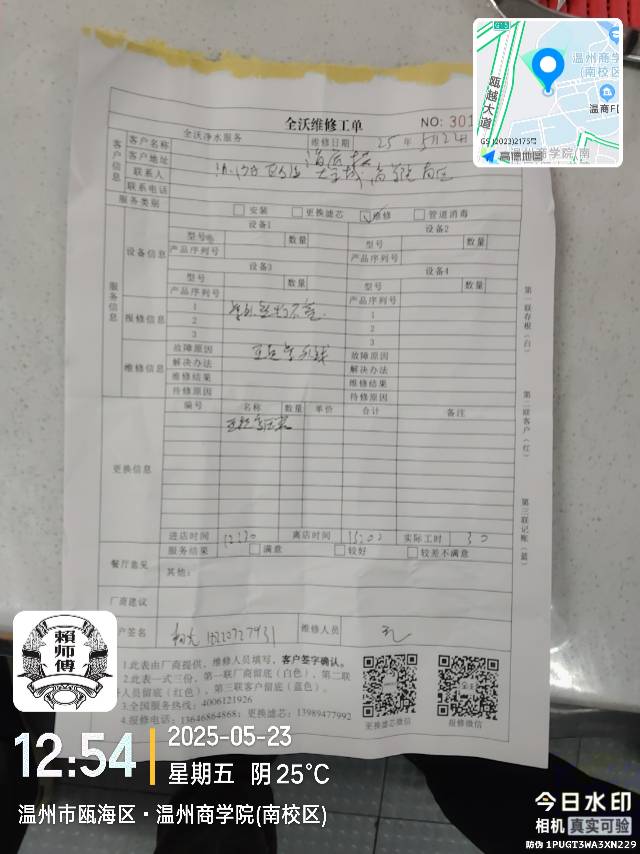 温州商学院
(南校区)
瓯越大道
温商FD
GS(2023)2175号
高德地图
温州商学院(南
全沃维修工单
NO: 301
全沃净水服务
客户信息
客户名称
维修日期 25 年 5月23日
客户地址
联系人
联系电话
服务类别
安装
更换滤芯
维修
管道消毒
服务信息
设备信息
设备1
设备2
型号
数量
型号
数量
产品序列号
产品序列号
设备3
设备4
型号
数量
型号
数量
产品序列号
产品序列号
报修信息
1
1
2
2
3
3
维修信息
故障原因
故障原因
解决办法
解决办法
维修结果
维修结果
待修原因
待修原因
更换信息
编号
名称
数量
单价
合计
备注
进店时间
离店时间
实际工时 30
餐厅意见
服务结果
满意
较好
较差不满意
其他:
厂商建议
户签名
维修人员
1.此表由厂商提供,维修人员填写,客户签字确认。
2.此表一式三份,第一联厂商留底(白色),第二联
人员留底(红色),第三联客户留底(蓝色)。
3.全国服务热线: 4006121926
4.报修电话: 13646864868; 更换滤芯: 13989477992
更换滤芯微信
报修微信
第一联存根(白)
第二联客户(红)
第三联记账(蓝)
賴师傅
12:54
2025-05-23
星期五 阴 25℃
温州市瓯海区·温州商学院(南校区)
今日水印
相机 真实可验
防伪 1PUGT3WA3XN229